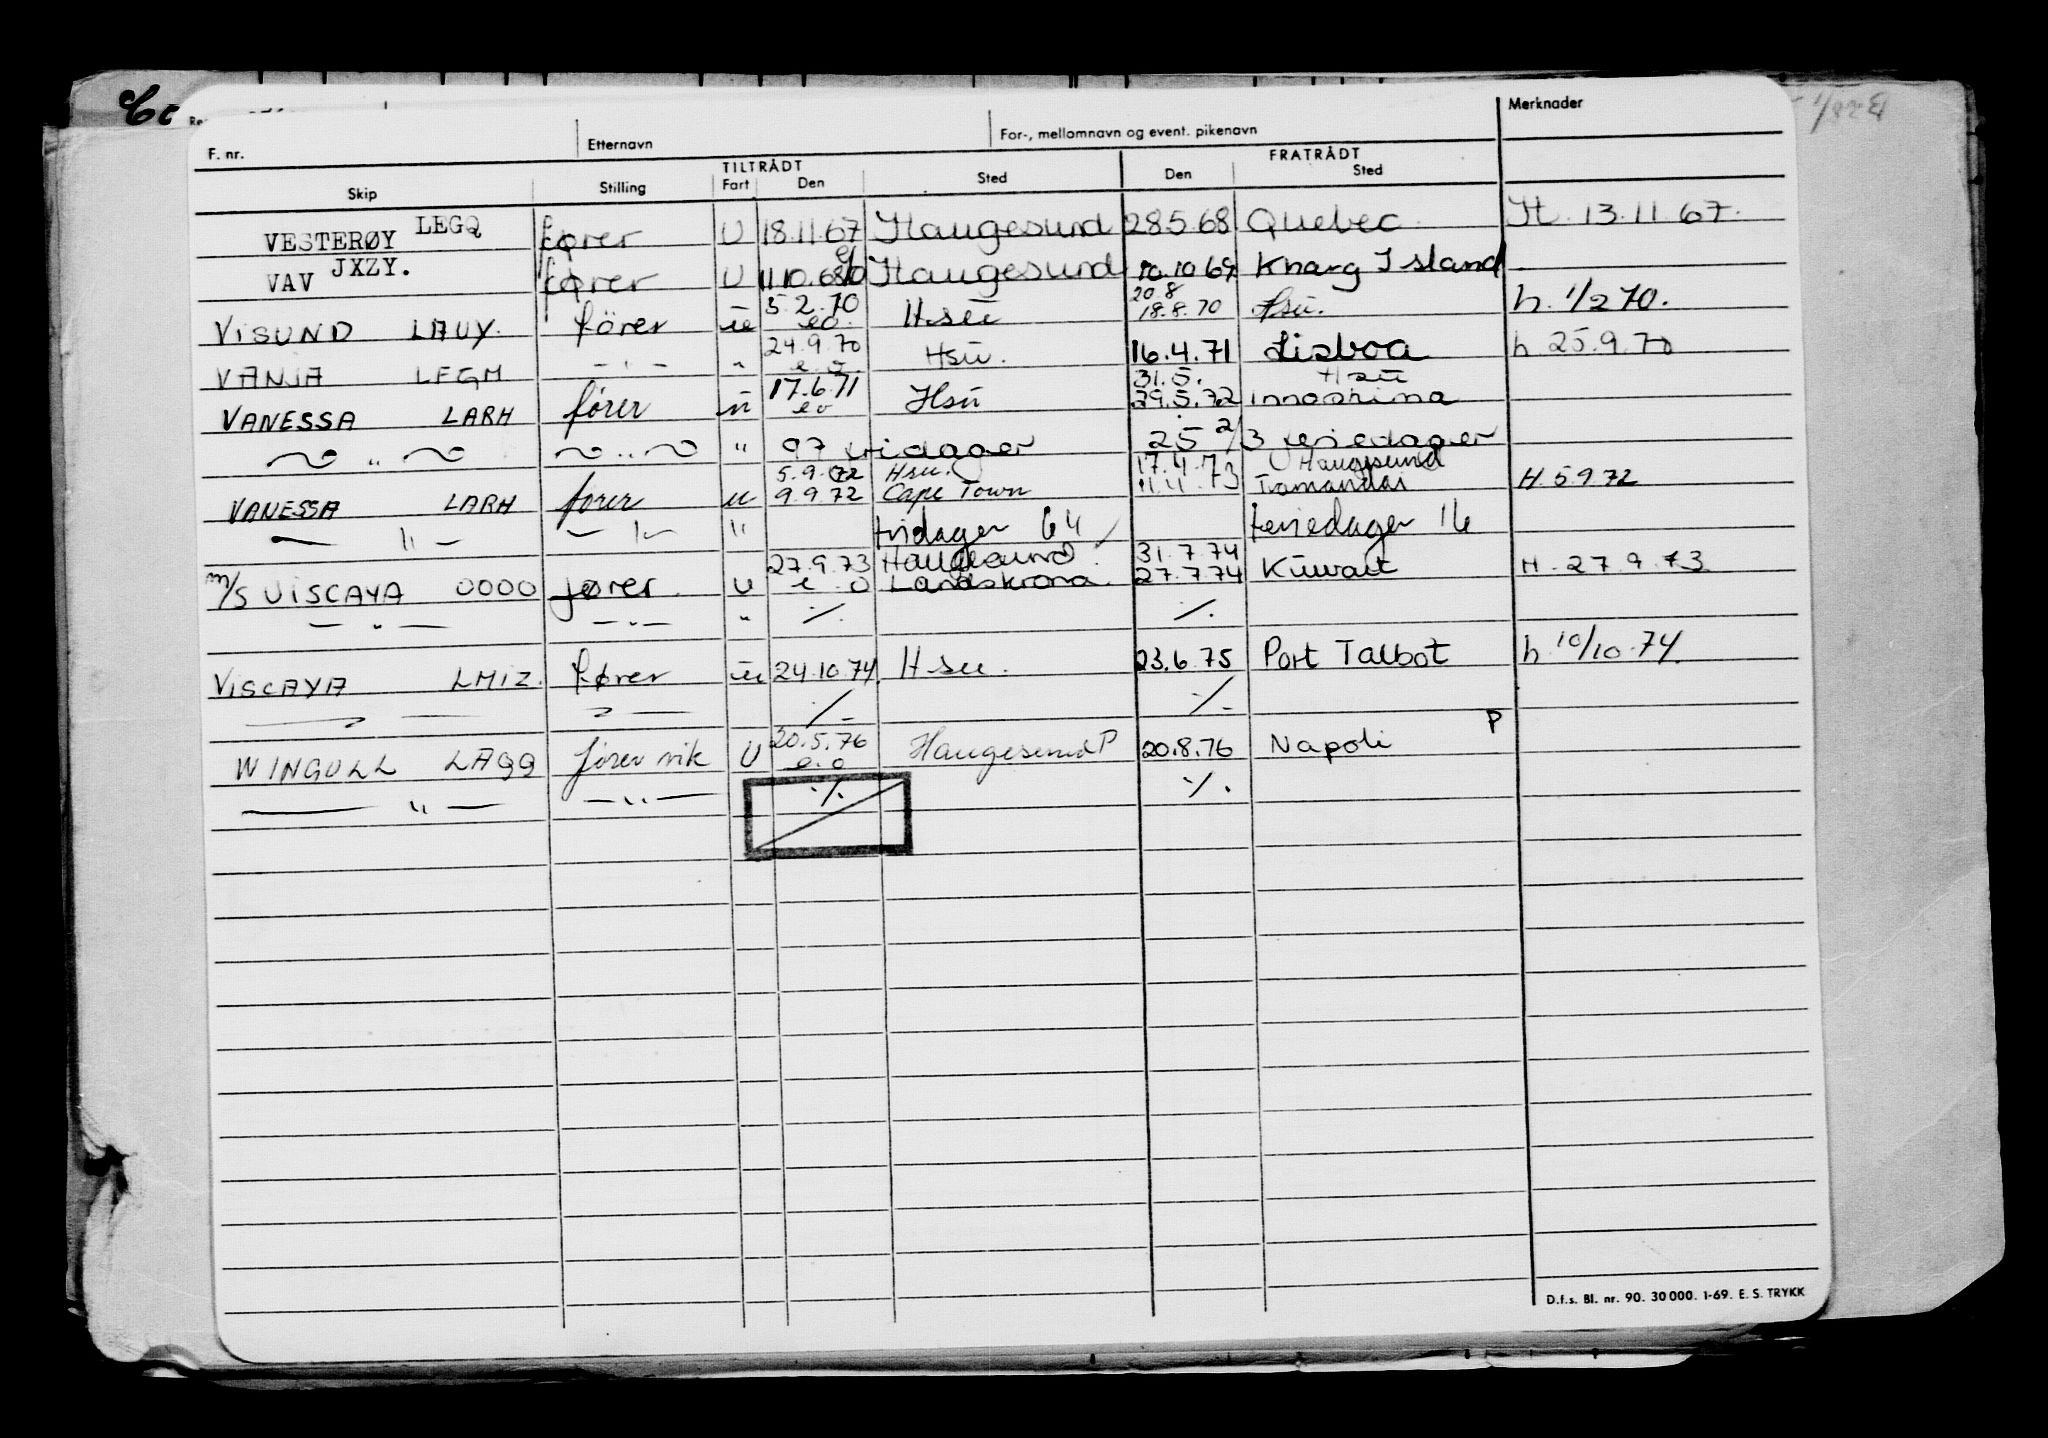 F. nr. Etternavn For-, mellomnavn og event. pikenavn Merknader
TILTRÅDT FRATRÅDT
Skip Stilling Fart Den Sted Den Sted
VESTERØY LEGQ fører U 18.11.67 Haugesund 28.5.68 Quebec H. 13.11.67.
VAV JXZY. fører U Haugesund 10.10.69 Kharg Island
5.2.70 20.8
VISUND LAUY. fører u eo. Hsu 18.8.70 Hsu. h. 1/2 70.
24.9.70
VANJA LEGM - " - " e.o. Hsu. 16.4.71 Lisboa h 25.9.70
17.6.71 31.5. Hsu
VANESSA LARH fører u eo Hsu 29.5.72
" " 97 fridager 25 2/3 feriedager
5.9.72 Hsu. 17.4.73 Haugesund
VANESSA LARH fører u 9.9.72 Cape Town 11.4.73 Tramandai H 5.9.72
- " - - " - " fridager 64 feriedager 16
27.9.73 Haugesund 31.7.74
m/s VISCAYA OOOO fører U e.o Landskrona. 27.7.74 Kuwait H. 27.9.73.
- " - - " - " ./. ./.
VISCAYA LMIZ. fører u 24.10.74. Hsu. 23.6.75 Port Talbot h 10/10.74.
./. ./.
20.5.76 P
WINGULL LAQQ fører vik U e.o Haugesund P 20.8.76 Napoli
- " - - " - ./. ./.
D.f.s. Bl. nr. 90. 30 000. 1-69. E. S. TRYKK